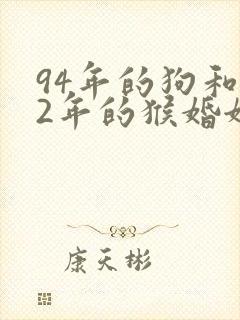 94年的狗和
2年的猴婚
康天彬